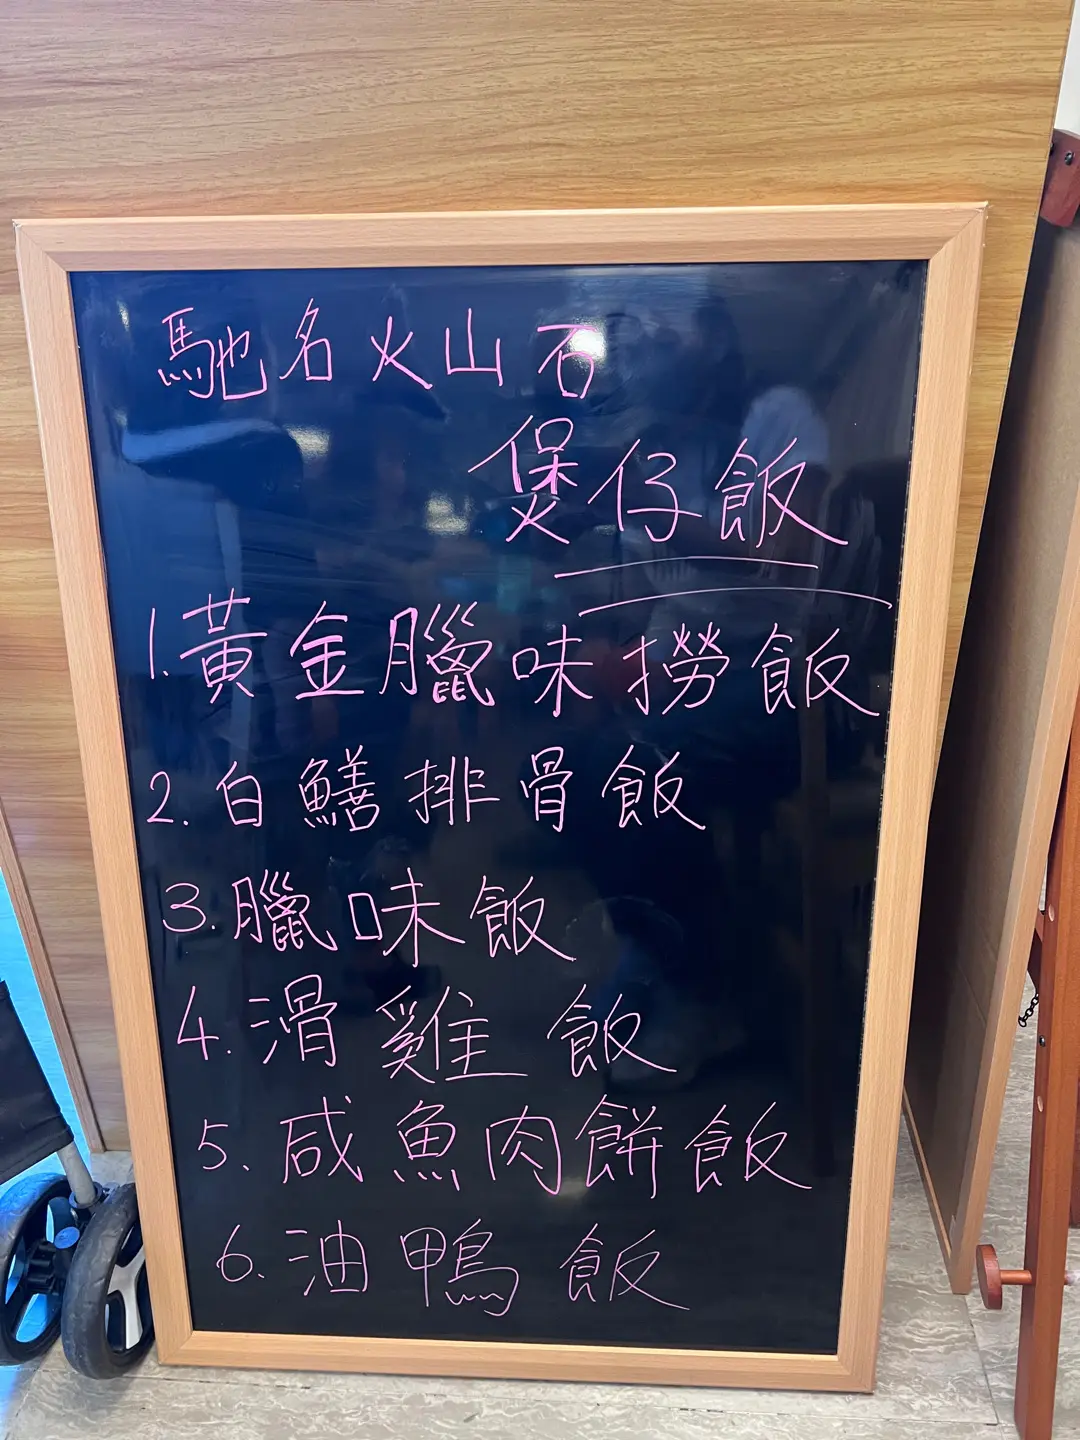 馳名火山石
煲仔飯
1.黃金臘味撈飯
2.白鱔排骨飯
3.臘味飯
4.滑雞飯
5.咸魚肉餅飯
6.油鴨飯